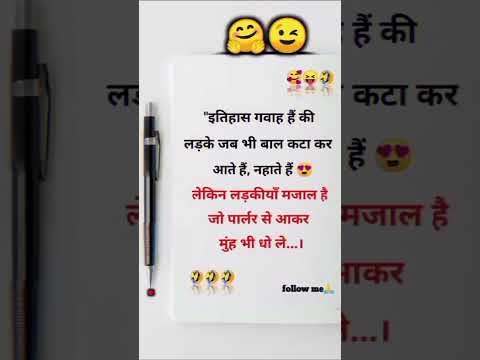 "इतिहास गवाह हैं की
लड़के जब भी बाल कटा कर
आते हैं, नहाते हैं 😍
लेकिन लड़कीयाँ मजाल है
जो पार्लर से आकर
मुंह भी धो ले...।
follow me🙏